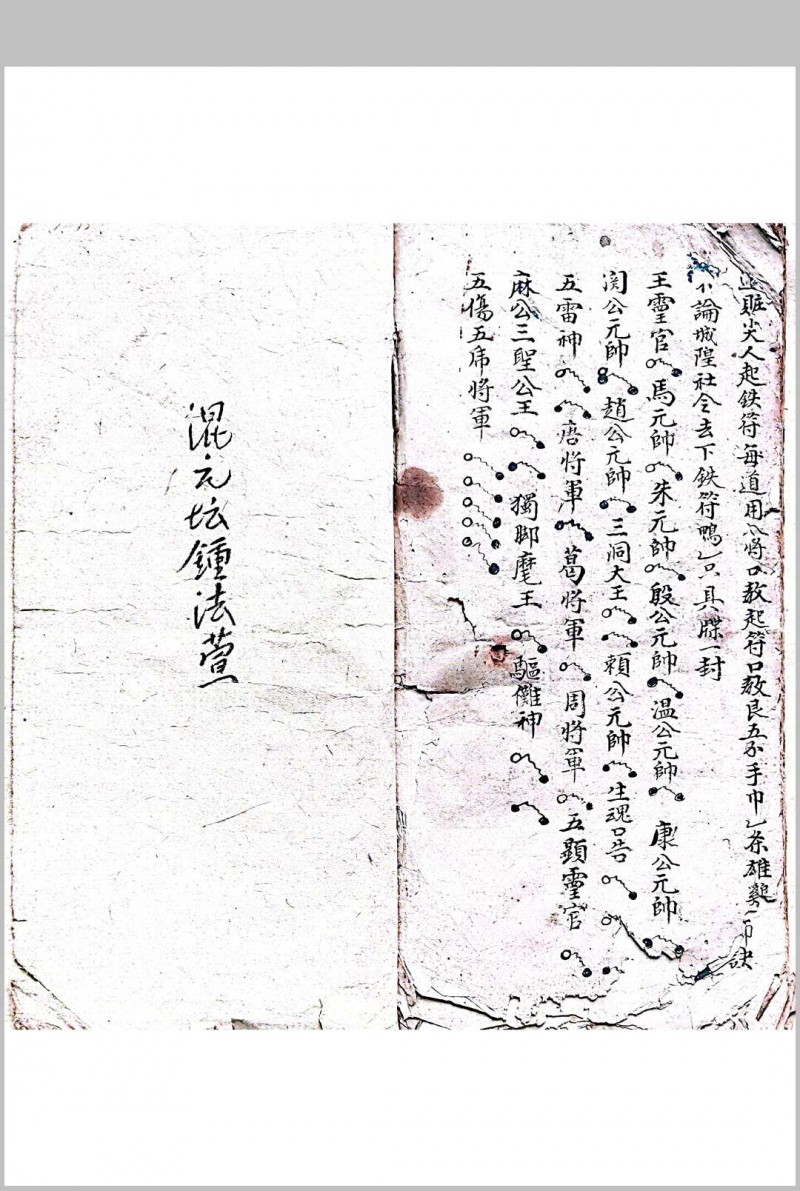 人起鉄符每道用 將口教起符口教良五 手巾乙条雄鷄一
不論城隍社令去下鉄符鴨乙只具牒一封
王霊官 馬元帥 朱元帥 殷公元帥 温公元帥 康公元帥
関公元帥 趙公元帥 三洞大王 賴公元帥 生魂
五雷神 唐將軍 葛將軍 周將軍 五顕霊官
麻公三聖公王 獨脚麾王 驅儺神
五傷五 將軍
混元坛鍾法萱